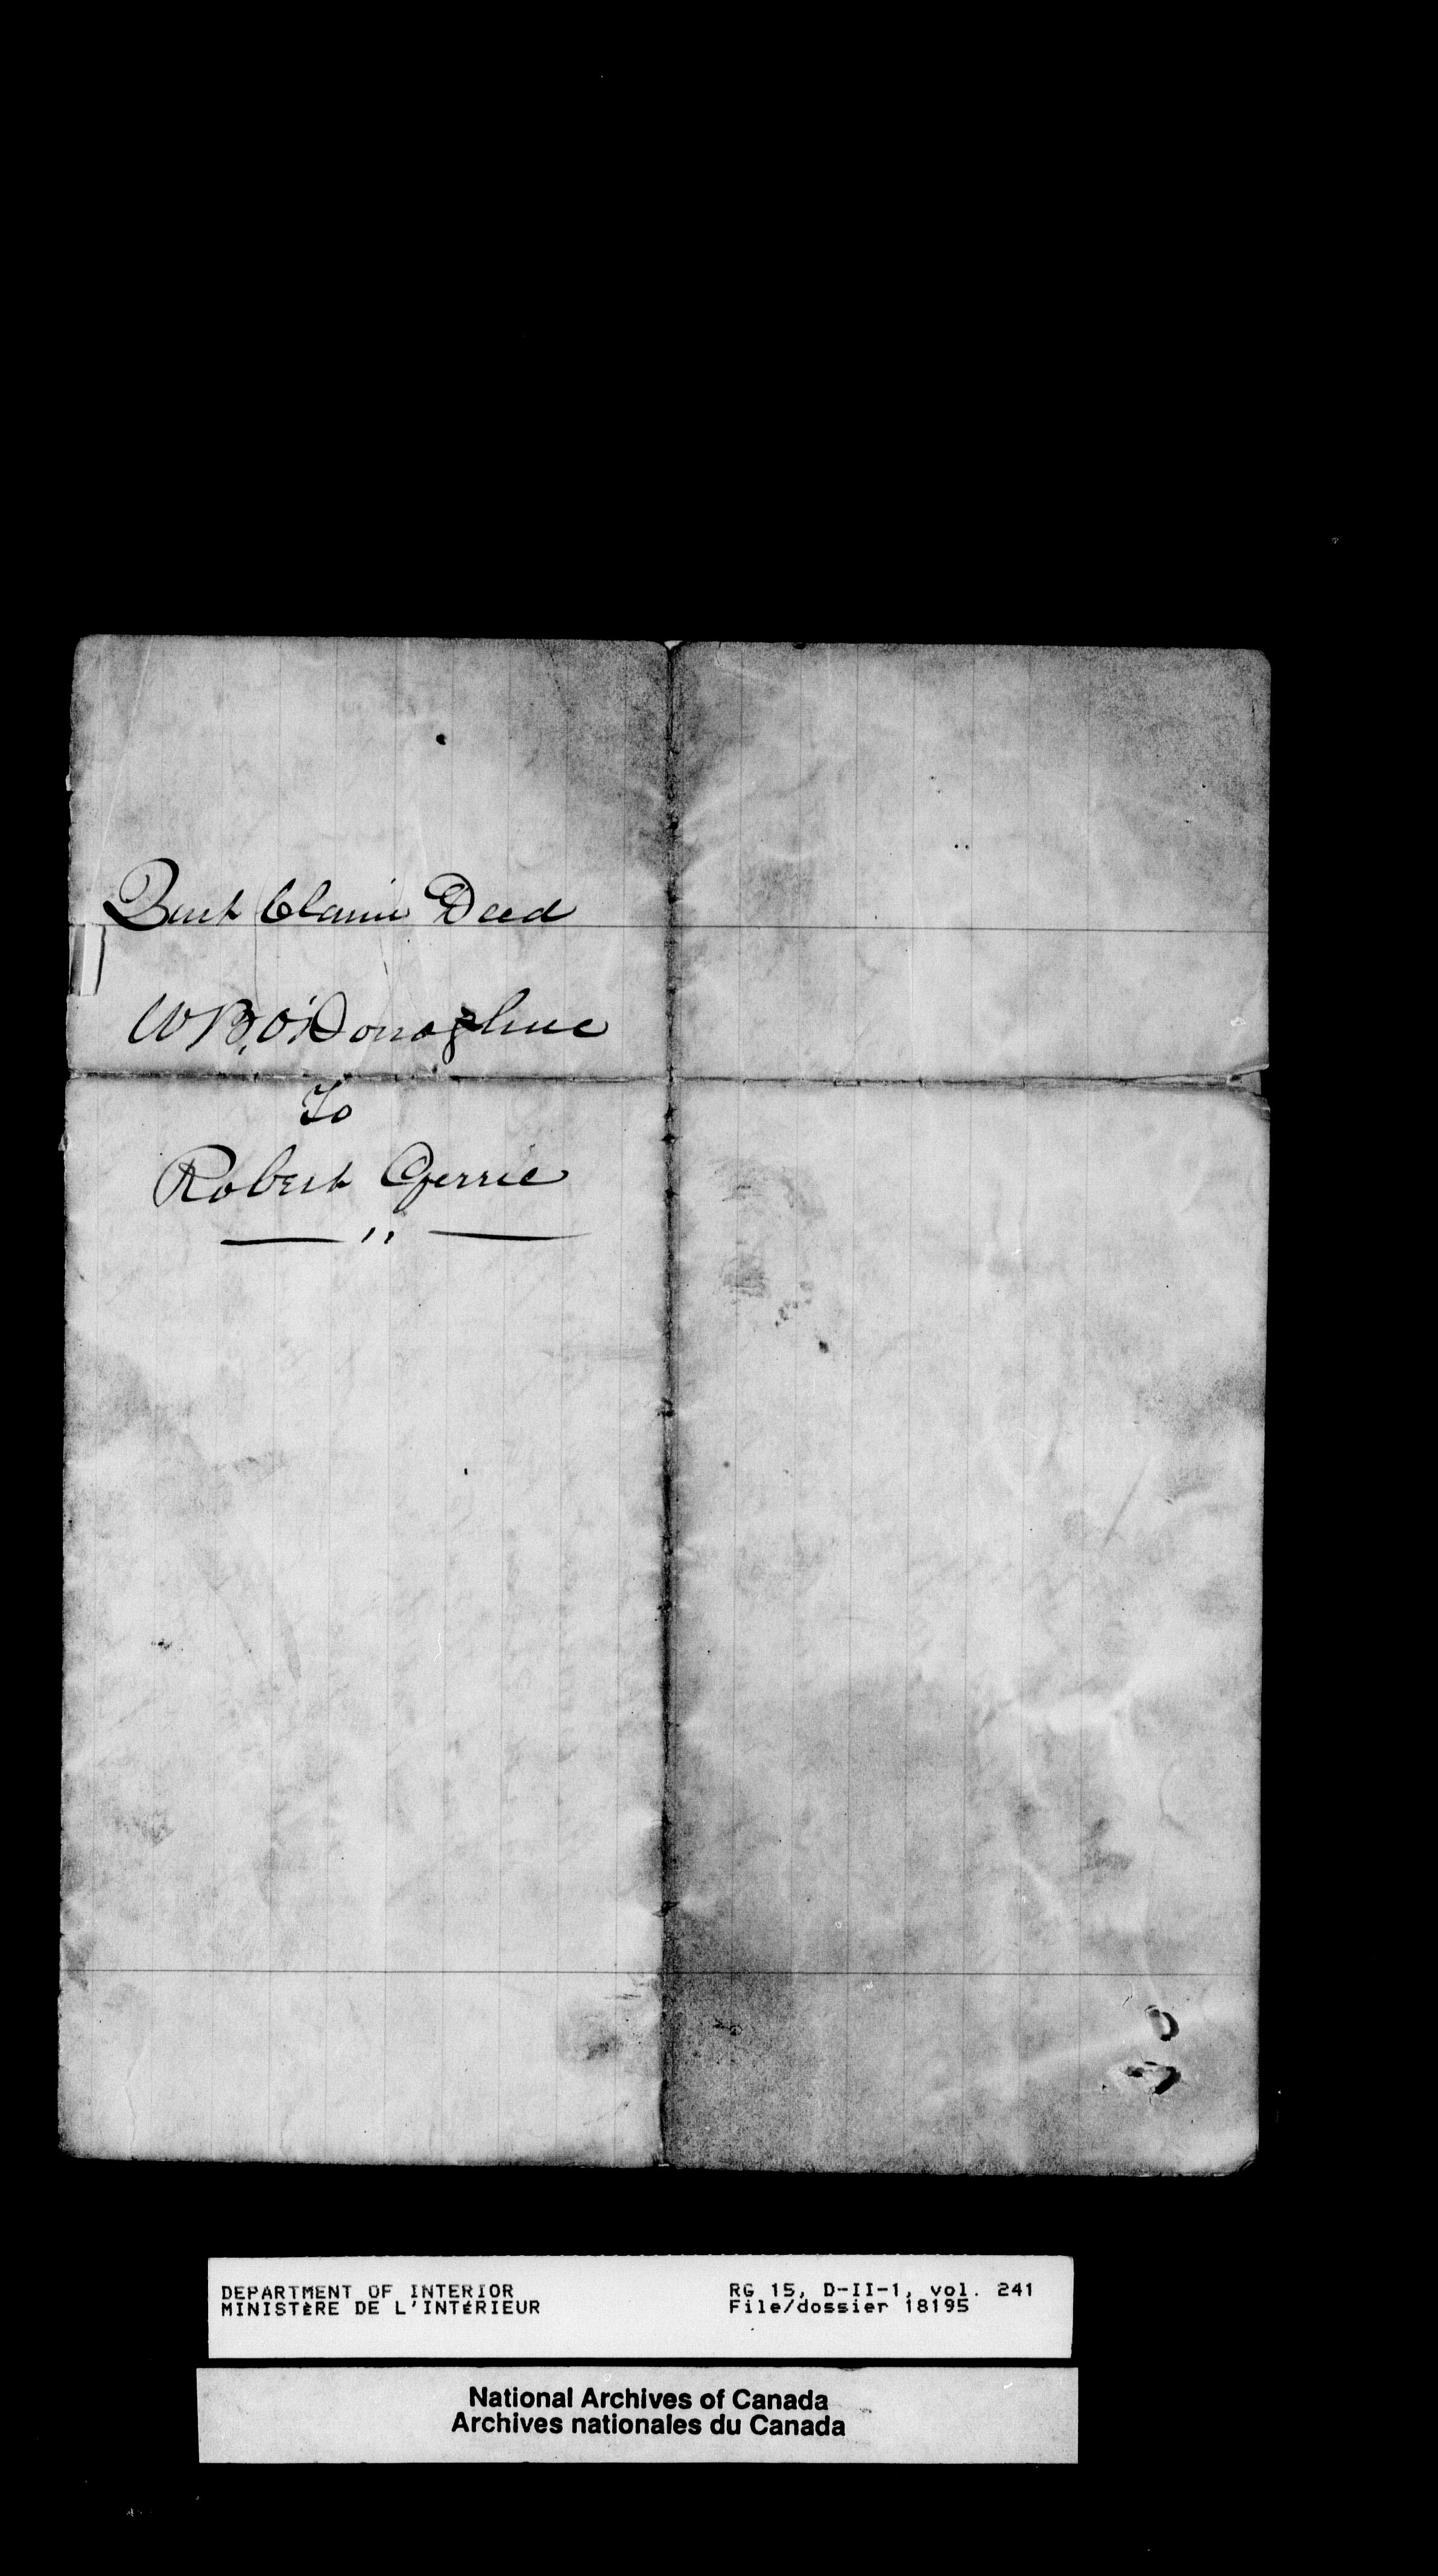 Quit Claim Deed
W B, O'Donoghue
To
Robert Gerrie
DEPARTMENT OF INTERIOR
MINISTÈRE DE L'INTÉRIEUR
RG 15, D-II-1, vol. 241
File/dossier 18195
National Archives of Canada
Archives nationales du Canada